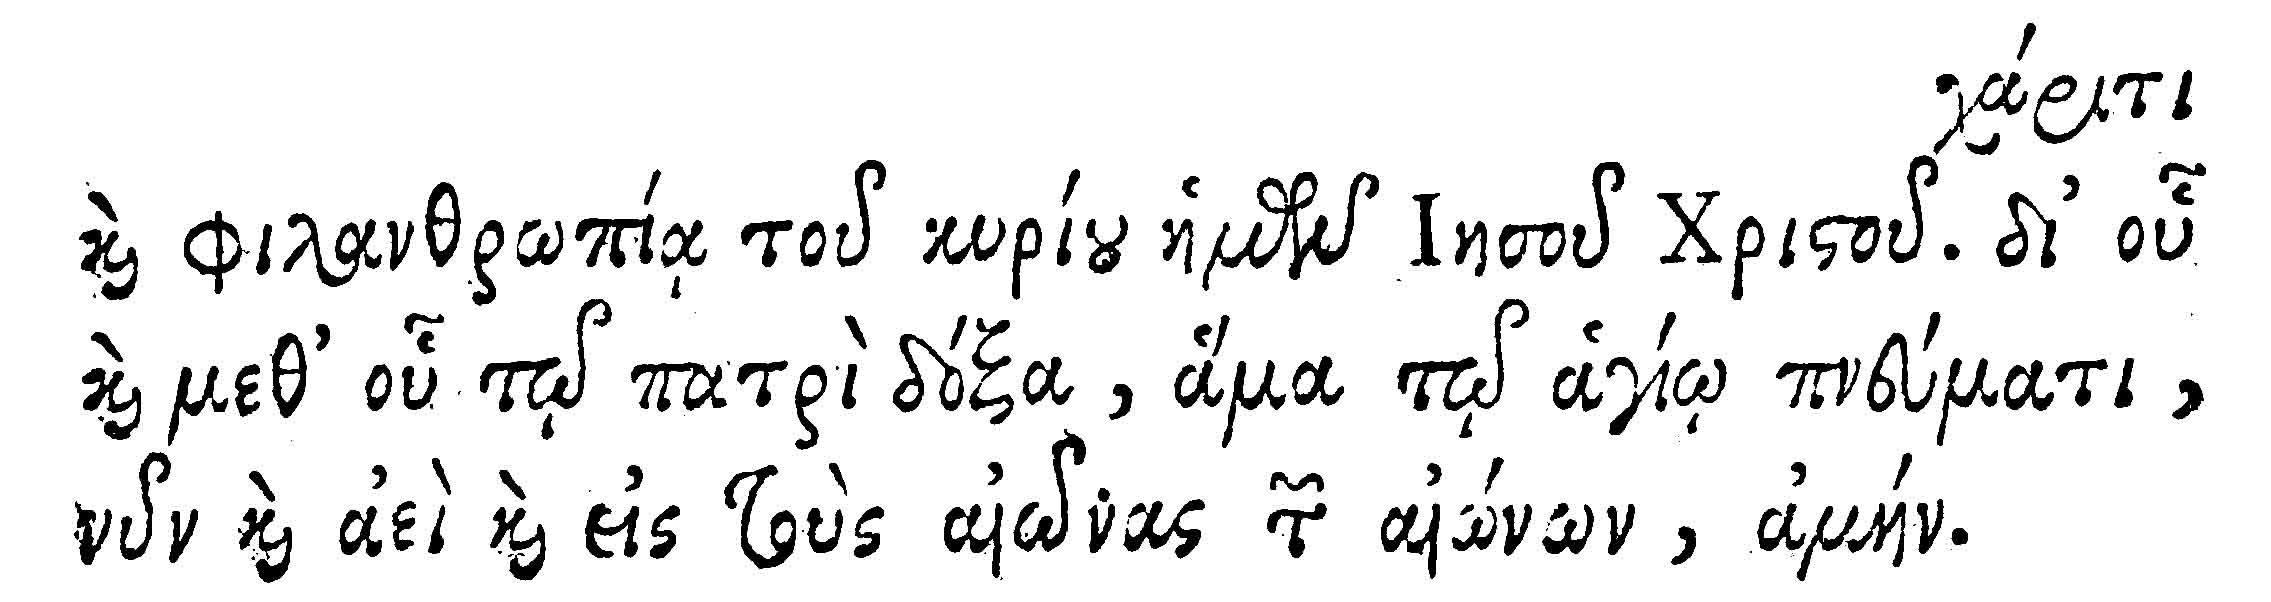 χάριτι
ϗ̀ φιλανθρωπίᾳ τοῦ κυρίȣ ἡμῶν Ιησοῦ Χριϛοῦ. δι’ οὗ
ϗ̀ μεθ’ οὗ τῷ πατρὶ δόξα, ἅμα τῷ ἁγίῳ πνεύματι,
νῦν ϗ̀ ἀεὶ ϗ̀ εἰς τοὺς αἰῶνας τῶν αἰώνων, ἀμήν.